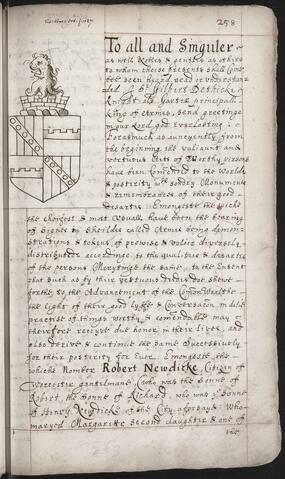 258
To all and Singuler
as well Nobles & gentles as others
to whom theise presents shall Come
bee seen heard read or vnderstan=
ded I Sr Gilbert Dethicke
Knight als Garter principall
king of Armes, send greetinge
in our Lord god Everlasting
forasmuch as aunciently from
the begining the valiaunt and
vertuous Acts of Worthy persons
have been Comended to the World
& posterity wth sondry Monuments
& remembrances of their good
desarts Emongst the which
the chiefest & most vsuall have been the bearing
of Signes in Sheildes called Armes being demon=
strations & tokens of prowes & valoir diversely
distributed according to the qualities & desarts
of the persons Meryting the same, to the Entent
that such as by their vertuous doe shew
forth to the Advancement of the Common Wealth
the light of their good lyffe & Conversacion in dalie
practise of things worthy & comendable may
therfore receyve due honor in their lives, and
also & continue the Same Successively
for their posterity for Ever Emongst the
which Nomber Robert Newdicke Citizen of
Worcester gentilmane (who was the Sonne of
Robert, the Sonne of Richard, who was ye Sonne
of Henry Newdicke of the City aforsayd Who
maryed Margarette Second daughter & one of
the